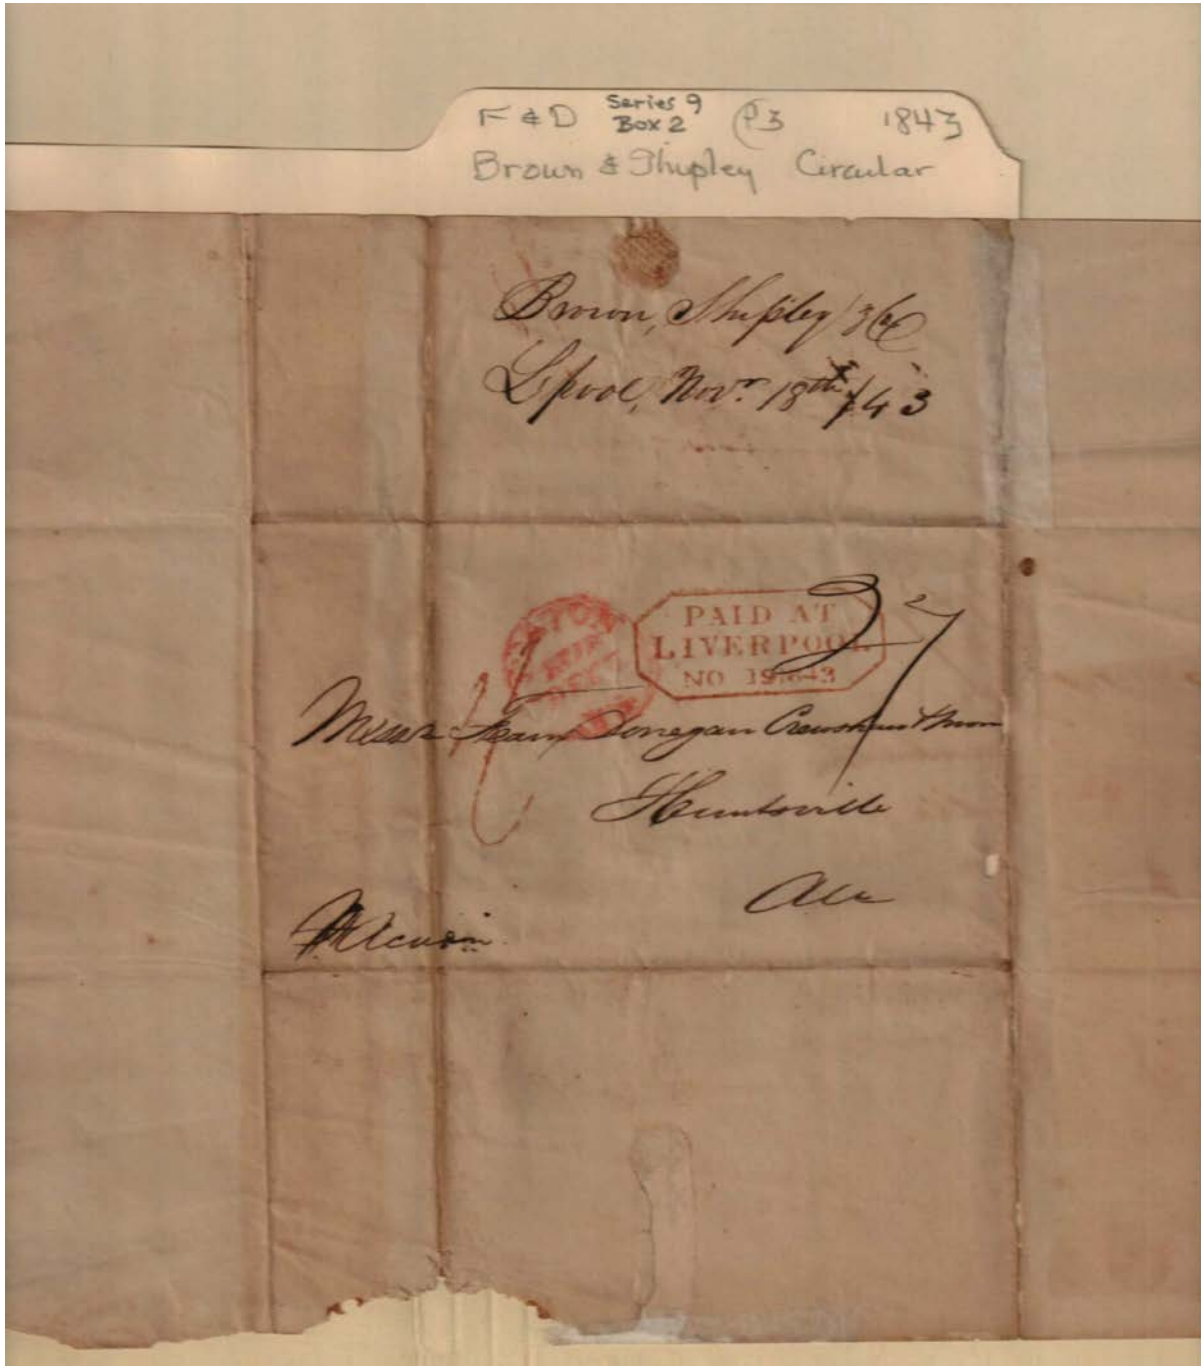 F & D Series 9 Box 2 P3 1843
Brown & Shipley Circular
Brown, Shipley & Co
Lpool, Novr. 18th /43
PAID AT
LIVERPOOL
NO 19 1843
27
Messrs Fearn Donegan Crenshaw &
Huntsville
Ala